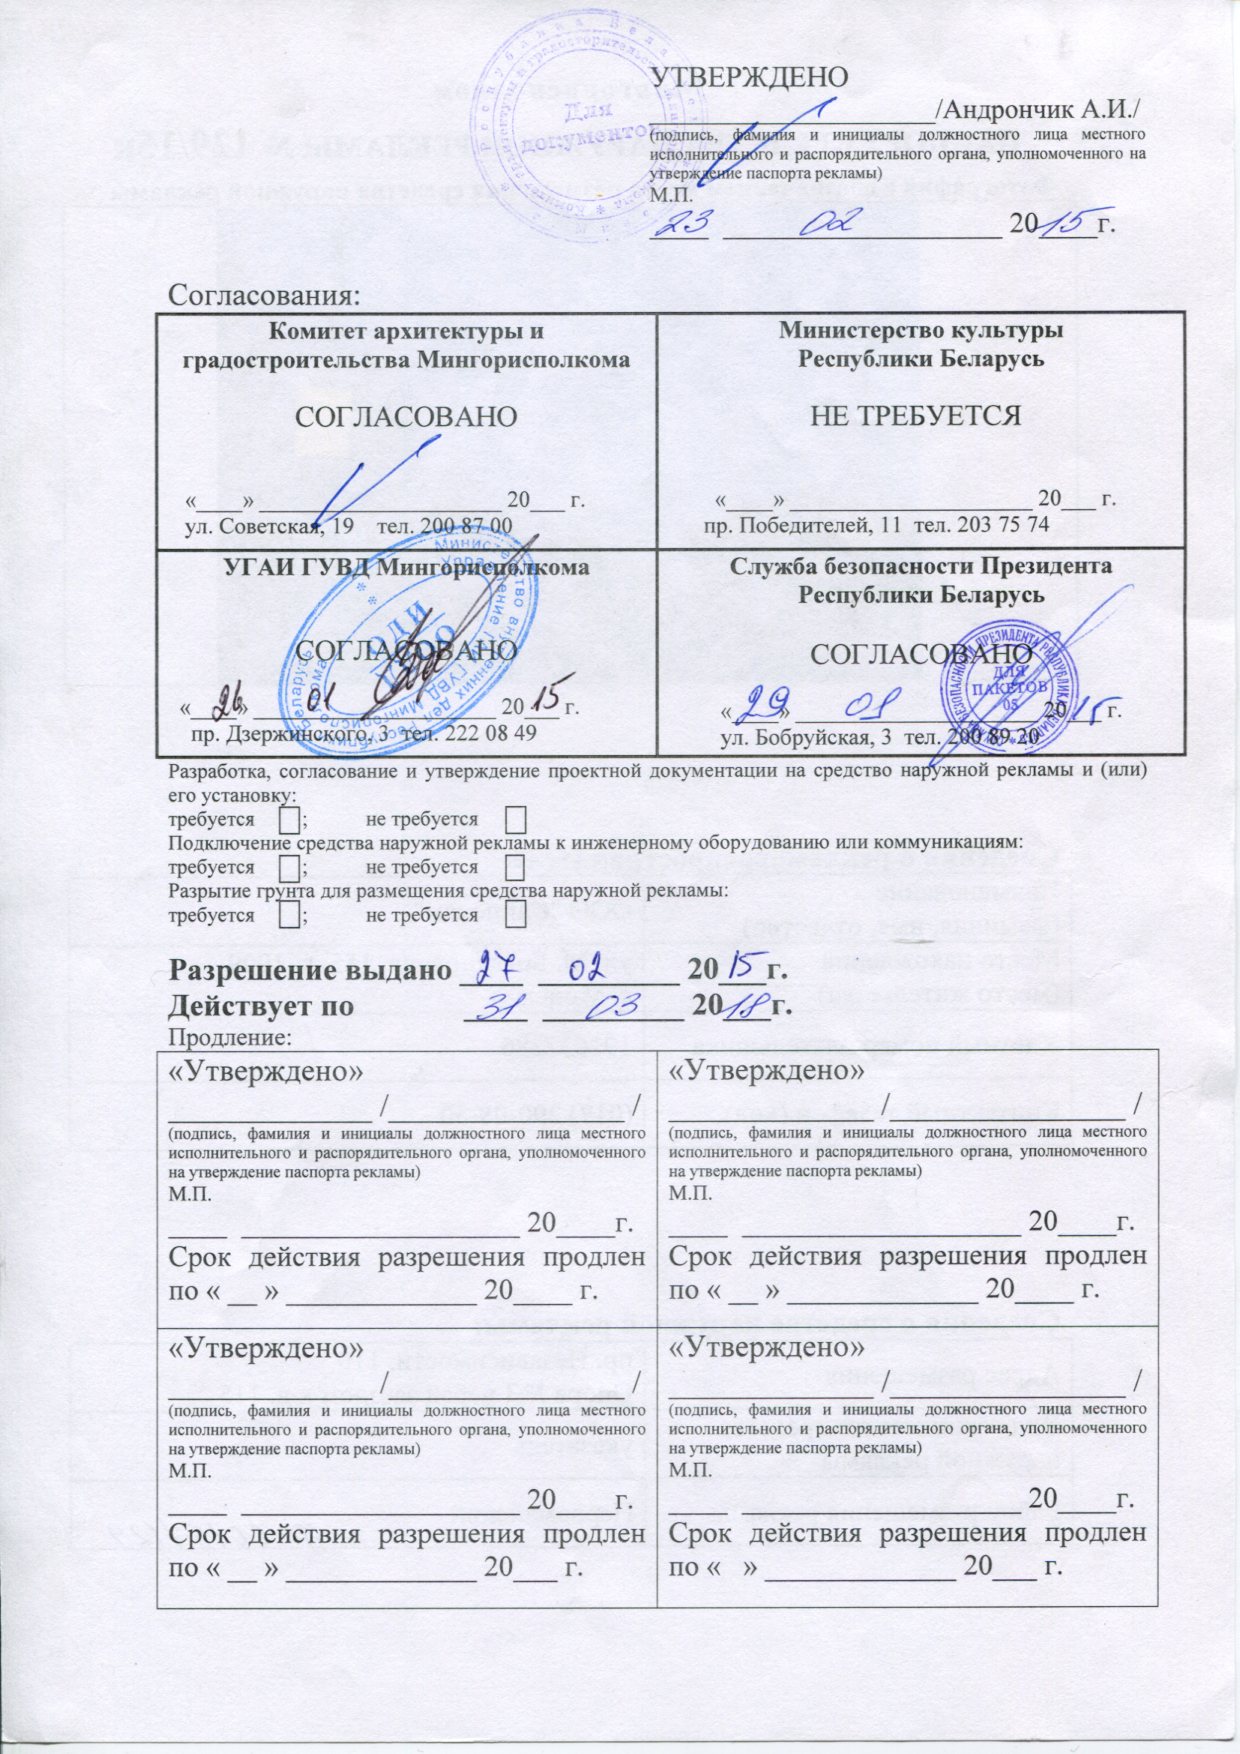 УТВЕРЖДЕНО
____________________/Андрончик А.И./
(подпись, фамилия и инициалы должностного лица местного
исполнительного и распорядительного органа, уполномоченного на
утверждение паспорта рекламы)
М.П.
23 02 2015г.
Для
документов
Согласования:
Комитет архитектуры и
градостроительства Мингорисполкома
СОГЛАСОВАНО
«____» ____________________ 20___ г.
ул. Советская, 19 тел. 200 87 00
Министерство культуры
Республики Беларусь
НЕ ТРЕБУЕТСЯ
«____» ____________________ 20___ г.
пр. Победителей, 11 тел. 203 75 74
УГАИ ГУВД Мингорисполкома
СОГЛАСОВАНО
«26» 01 2015 г.
пр. Дзержинского, 3 тел. 222 08 49
Служба безопасности Президента
Республики Беларусь
СОГЛАСОВАНО
ДЛЯ
ПАКЕТОВ
«29» 01 2015 г.
ул. Бобруйская, 3 тел. 200 89 20
Разработка, согласование и утверждение проектной документации на средство наружной рекламы и (или)
его установку:
требуется ; не требуется
Подключение средства наружной рекламы к инженерному оборудованию или коммуникациям:
требуется ; не требуется
Разрытие грунта для размещения средства наружной рекламы:
требуется ; не требуется
Разрешение выдано 27 02 2015г.
Действует по 31 03 2018г.
Продление:
«Утверждено»
______________ /________________ /
(подпись, фамилия и инициалы должностного лица местного
исполнительного и распорядительного органа, уполномоченного
на утверждение паспорта рекламы)
М.П.
____ ___________________ 20____г.
Срок действия разрешения продлен
по « __ » _____________ 20____ г.
«Утверждено»
______________ /________________ /
(подпись, фамилия и инициалы должностного лица местного
исполнительного и распорядительного органа, уполномоченного
на утверждение паспорта рекламы)
М.П.
____ ___________________ 20____г.
Срок действия разрешения продлен
по « __ » _____________ 20____ г.
«Утверждено»
______________ /________________ /
(подпись, фамилия и инициалы должностного лица местного
исполнительного и распорядительного органа, уполномоченного
на утверждение паспорта рекламы)
М.П.
____ ___________________ 20____г.
Срок действия разрешения продлен
по « __ » _____________ 20___ г.
«Утверждено»
______________ /________________ /
(подпись, фамилия и инициалы должностного лица местного
исполнительного и распорядительного органа, уполномоченного
на утверждение паспорта рекламы)
М.П.
____ ___________________ 20____г.
Срок действия разрешения продлен
по « » _____________ 20___ г.